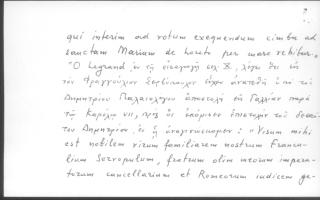 qui interim ad votum exequendum cimba ad
sanctam Mariam de Loreto per mare vehitur.
"Ὁ Legrand ἐν τῇ εἰσαγωγῇ σελ. X, λέγει ὅτι εἰς
τὸν Φραγγούλιον Σερβόπουλον εἶχεν ἀνατεθῇ ὑπὸ τοῦ
Δημητρίου Παλαιολόγου ἀποστολὴ εἰς Γαλλίαν παρὰ
τῷ Καρόλῳ VII, πρὸς ὃν ἐκόμισεν ἐπιστολὴν τοῦ
Δημητρίου, ἐν ᾗ ἀναγινώσκομεν: "Visum mihi
est nobilem virum familiarem nostrum Francu-
lium Servopulum, fratrum olim meorum impera-
torum cancellarium et Romeorum iudicem ge-